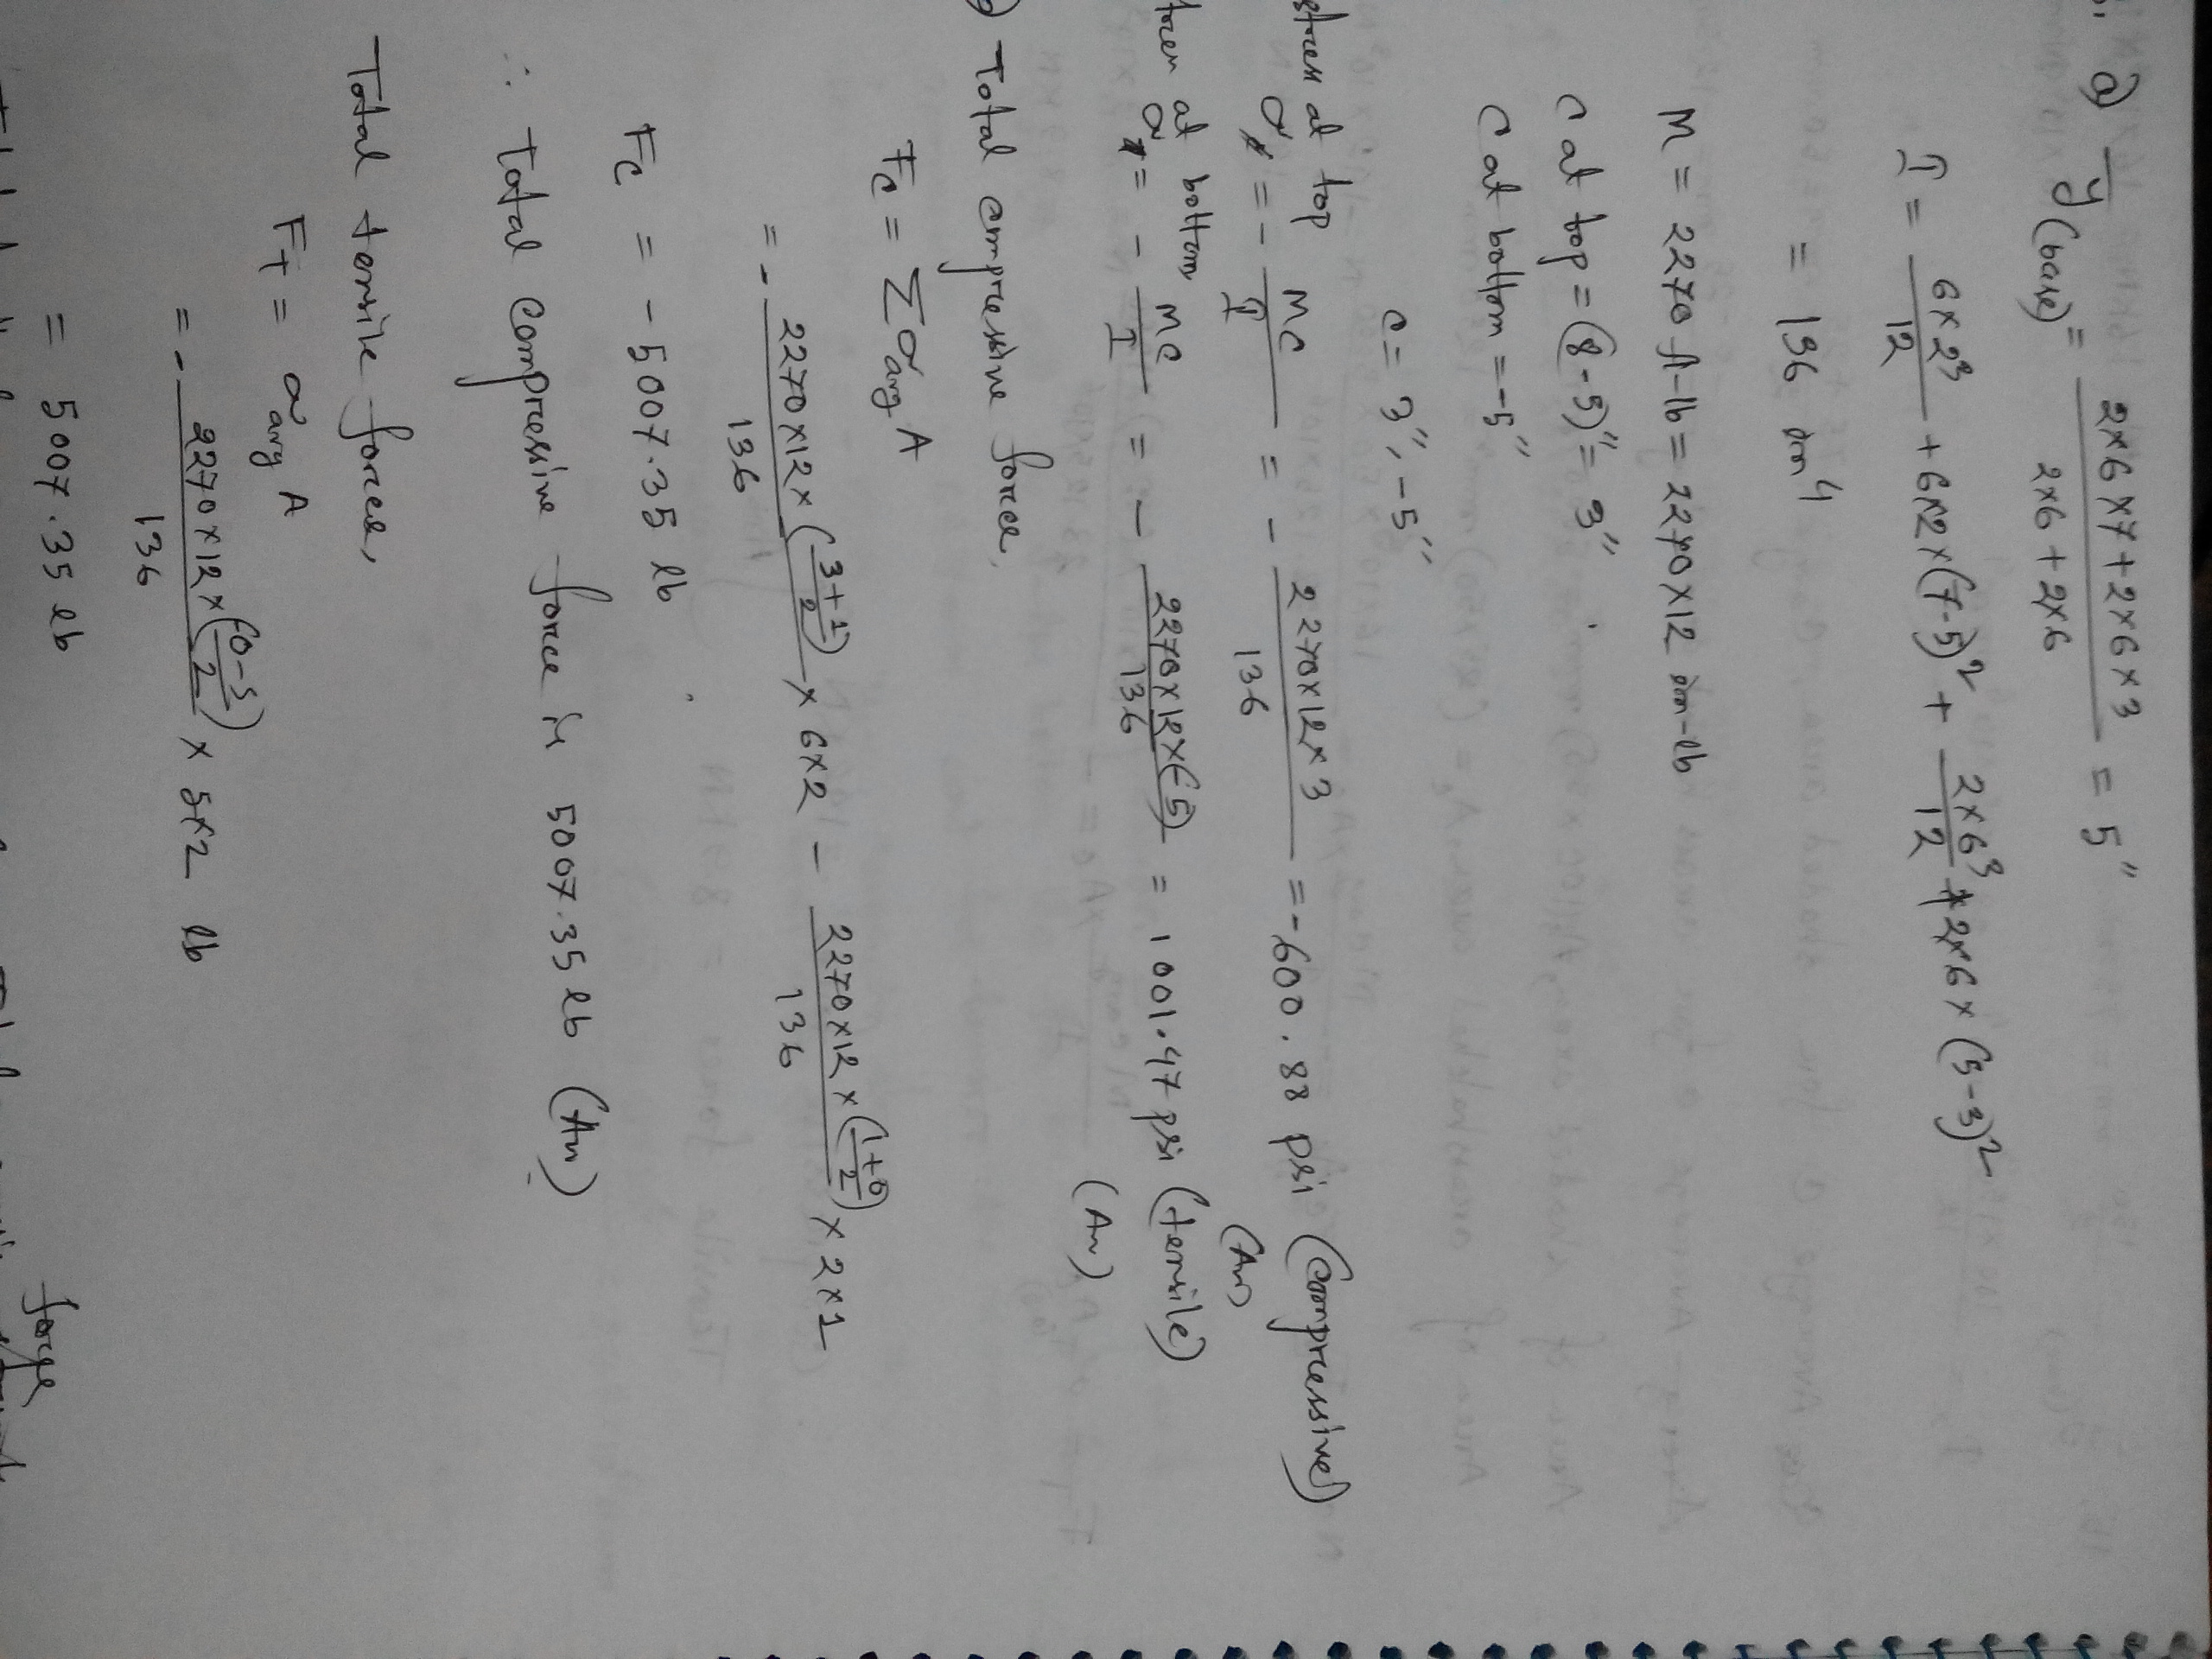 a) y̅(base) = (2×6×7+2×6×3)/(2×6+2×6) = 5"
I = 6×2³/12 + 6×2×(7-5)² + 2×6³/12 + 2×6×(5-3)²
= 136 in⁴
M = 2270 ft-lb = 2270×12 in-lb
C at top = (8-5)" = 3"
C at bottom = -5"
C = 3", -5"
stress at top
σ = - MC/I = - 2270×12×3/136 = -600.88 psi (compressive)
(An)
stress at bottom,
σ = - MC/I = - 2270×12×(-5)/136 = 1001.47 psi (tensile)
(An)
Total compressive force,
Fc = Σσavg A
= - 2270×12×((3+1)/2)/136 × 6×2 - 2270×12×((1+0)/2)/136 × 2×1
Fc = -5007.35 lb
∴ Total compressive force is 5007.35 lb (An)
Total tensile force,
FT = σavg A
= - 2270×12×((0-5)/2)/136 × 5×2 lb
= 5007.35 lb
force